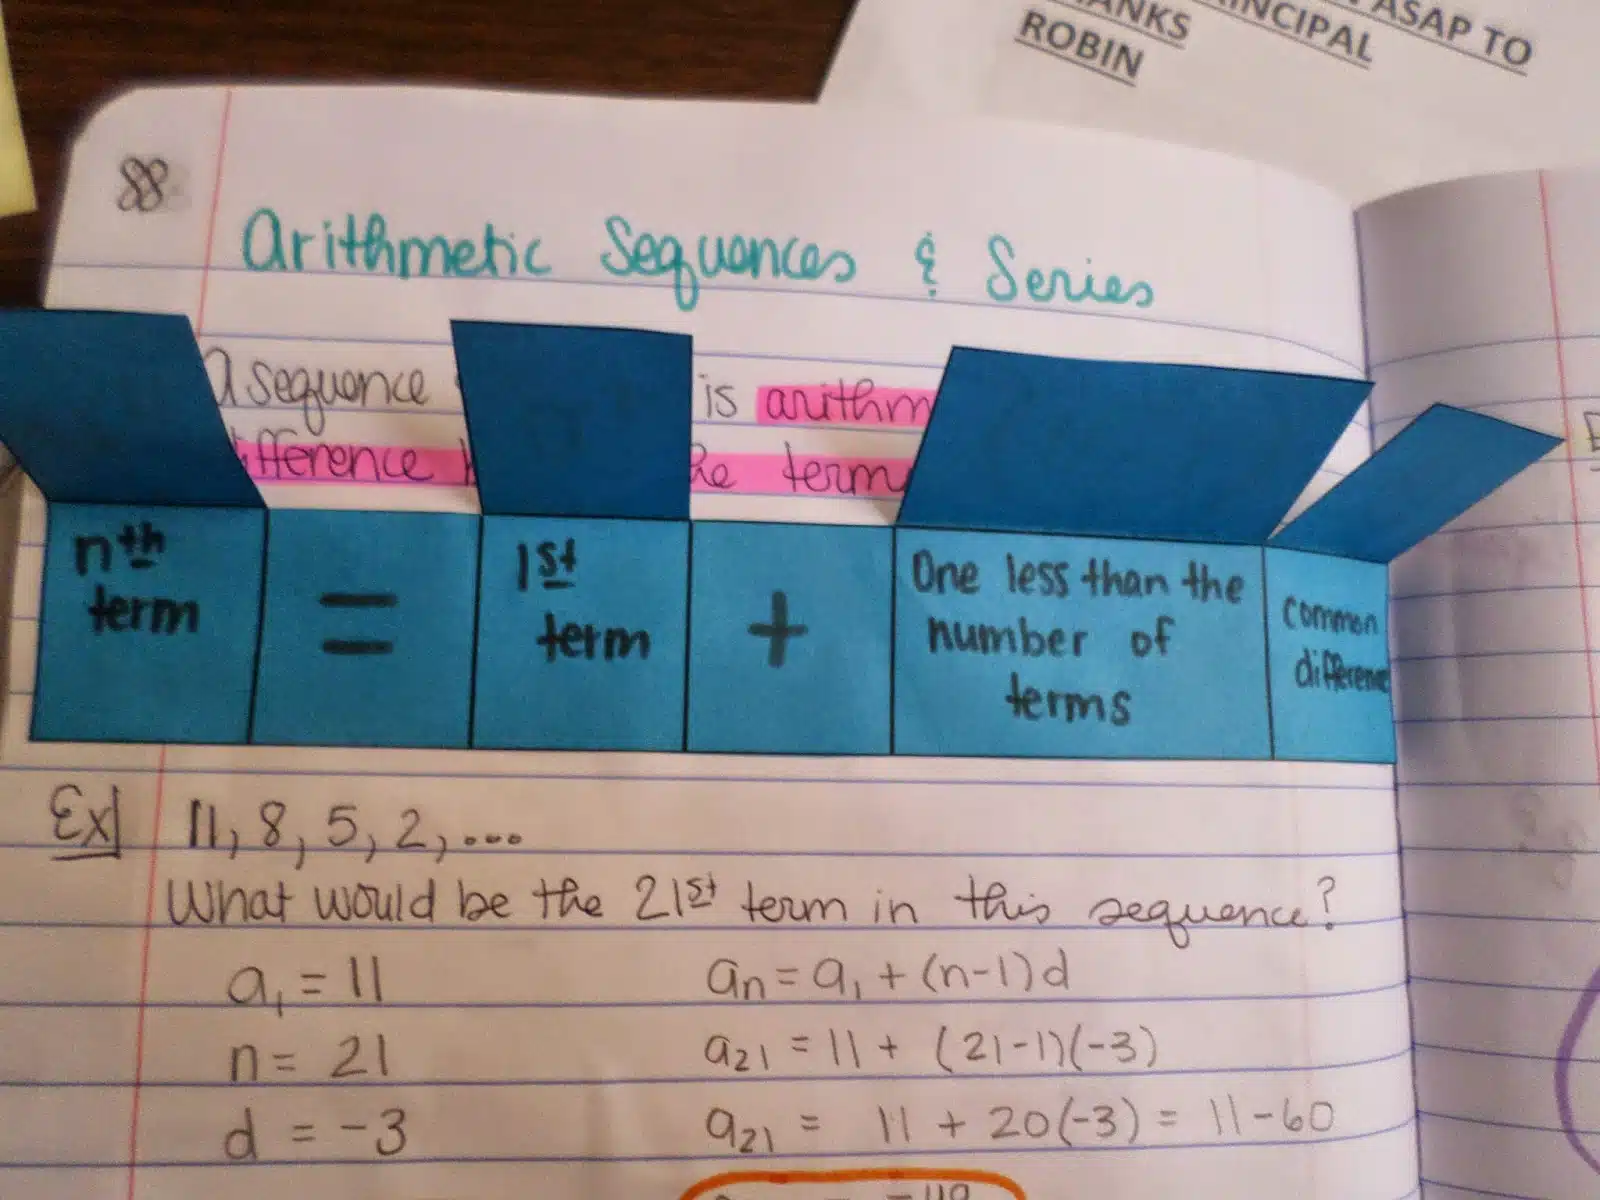 ASAP TO
PRINCIPAL
THANKS
ROBIN
88
Arithmetic Sequences & Series
A sequence is arithm
difference the terms
nth term = 1st term + One less than the number of terms common difference
Ex) 11, 8, 5, 2, ...
What would be the 21st term in this sequence?
a₁ = 11 an = a₁ + (n-1)d
n = 21 a21 = 11 + (21-1)(-3)
d = -3 a21 = 11 + 20(-3) = 11-60